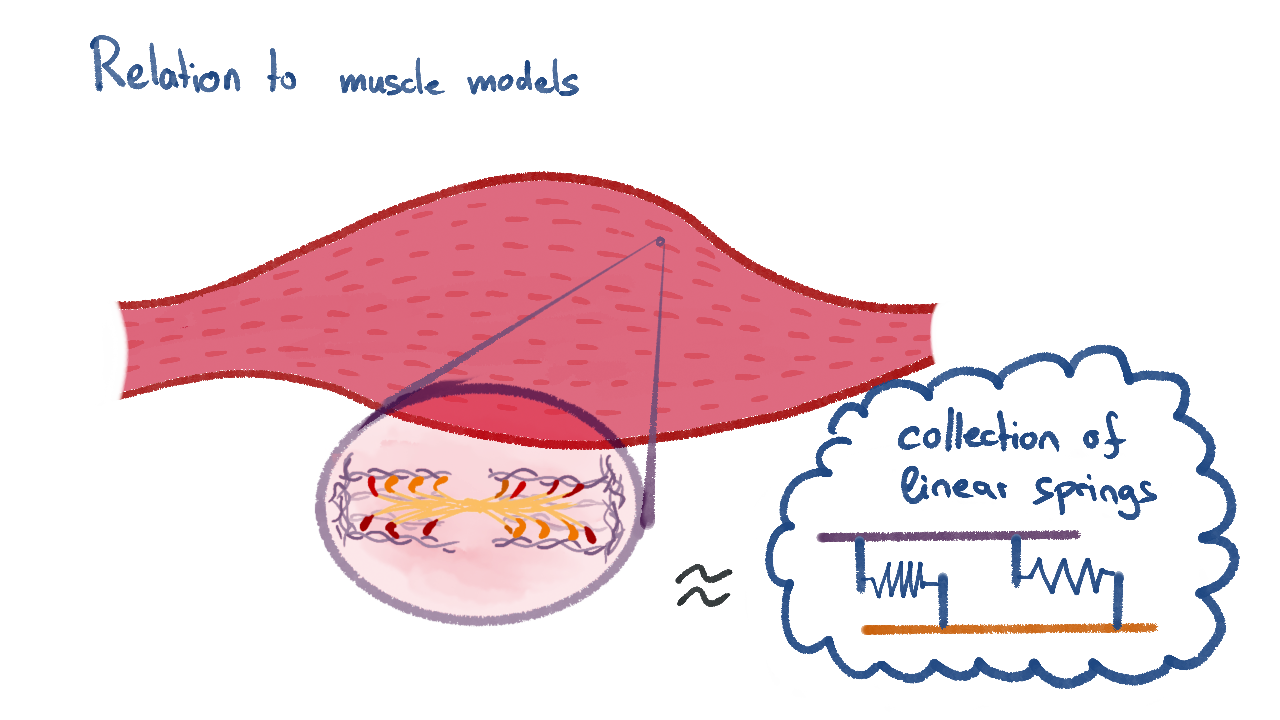 Relation to muscle models
collection of
linear springs
≈